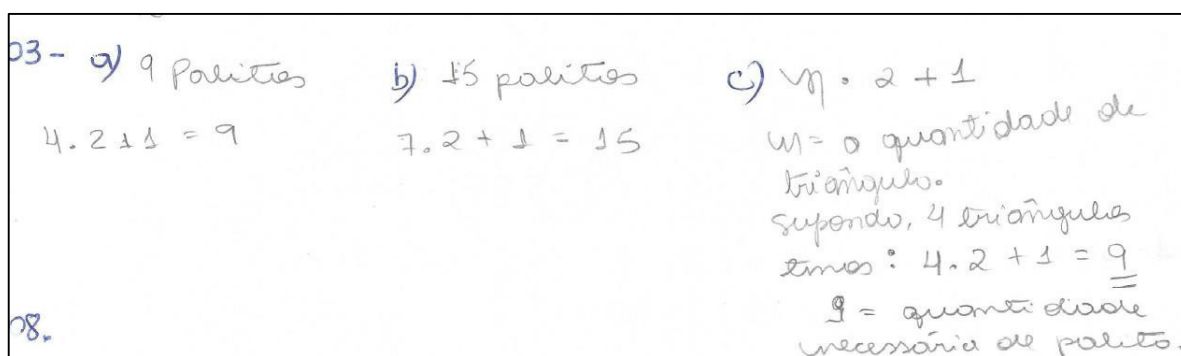 03- a) 9 Palitos
4.2+1 = 9
b) 15 palitos
7.2 + 1 = 15
c) n . 2 + 1
n = a quantidade de
triângulo.
supondo, 4 triângulos
temos : 4.2 + 1 = 9
9 = quantidade
necessária de palito.
08.